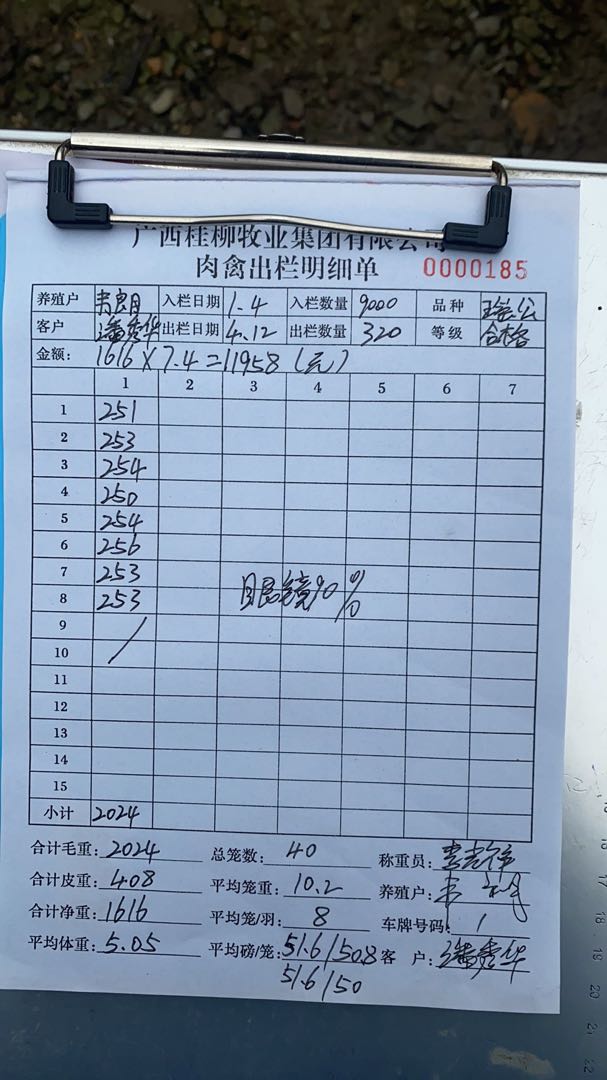 广西桂柳牧业集团有限公司
肉禽出栏明细单 0000185
养殖户 韦良月 入栏日期 1.4 入栏数量 9000 品种
客户 潘秀华 出栏日期 4.12 出栏数量 320 等级 合格
金额: 1616×7.4=11958(元)
1 2 3 4 5 6 7
1 251
2 253
3 254
4 250
5 254
6 256
7 253
8 253 眼镜90%
9
10
11
12
13
14
15
小计 2024
合计毛重: 2024 总笼数: 40 称重员:
合计皮重: 408 平均笼重: 10.2 养殖户: 韦
合计净重: 1616 平均笼/羽: 8 车牌号码: 1
平均体重: 5.05 平均磅/笼: 51.6/50.8 客 户: 潘秀华
51.6/50